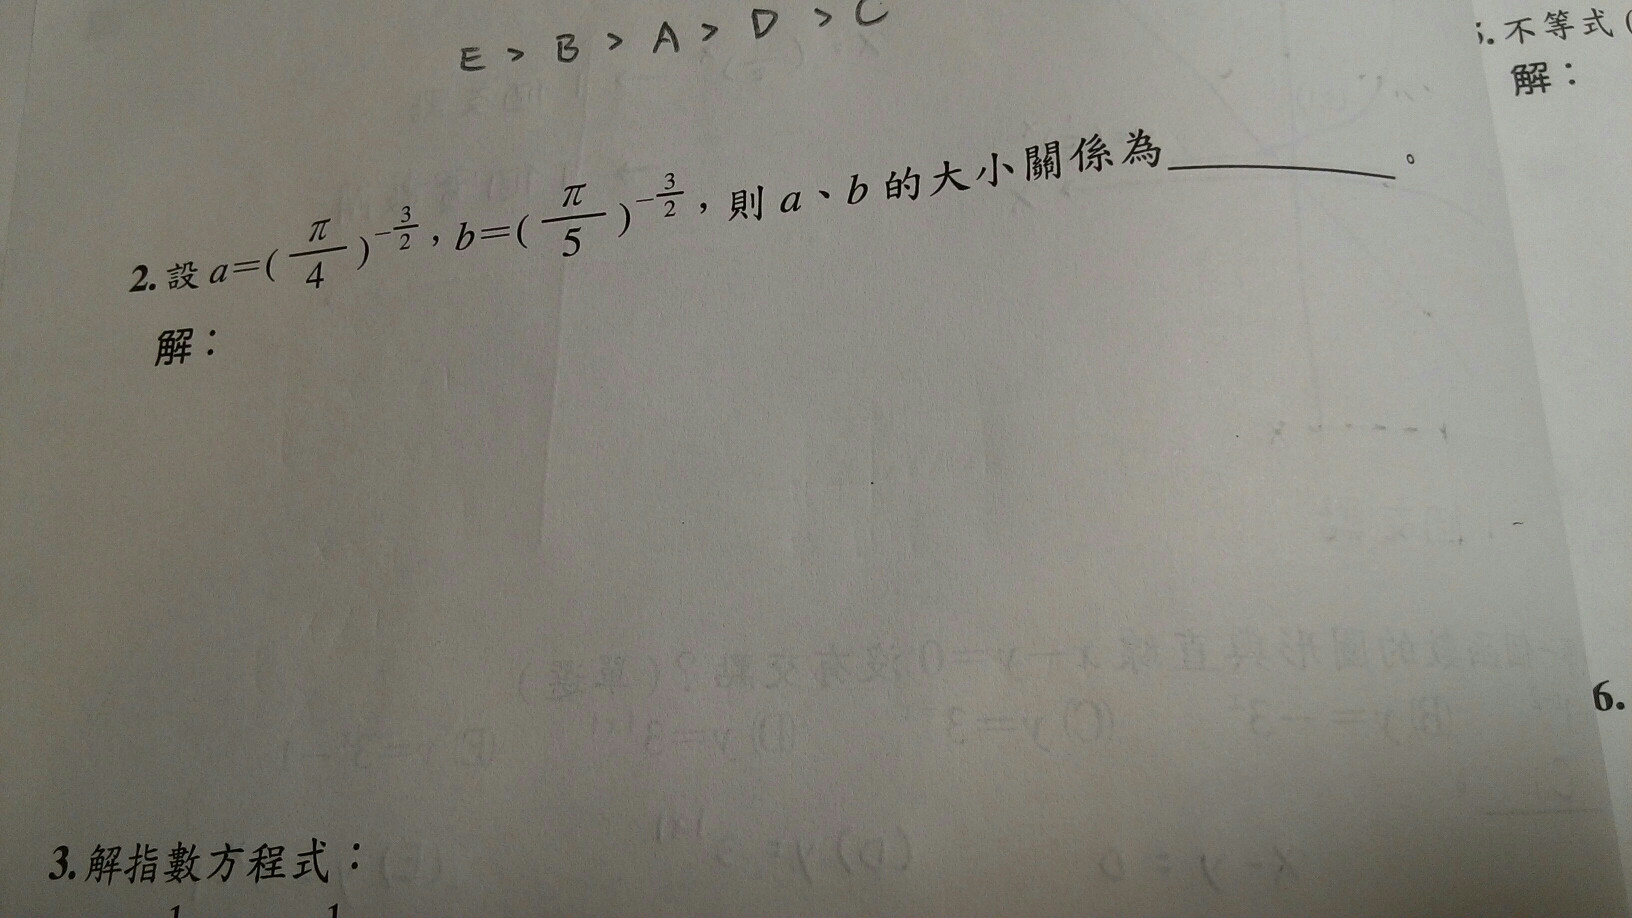 E > B > A > D > C
2. 設 a=(π/4)^{-3/2}, b=(π/5)^{-3/2}, 則 a、b 的大小關係為________。
解：
3. 解指數方程式：
. 不等式(
解：
6.